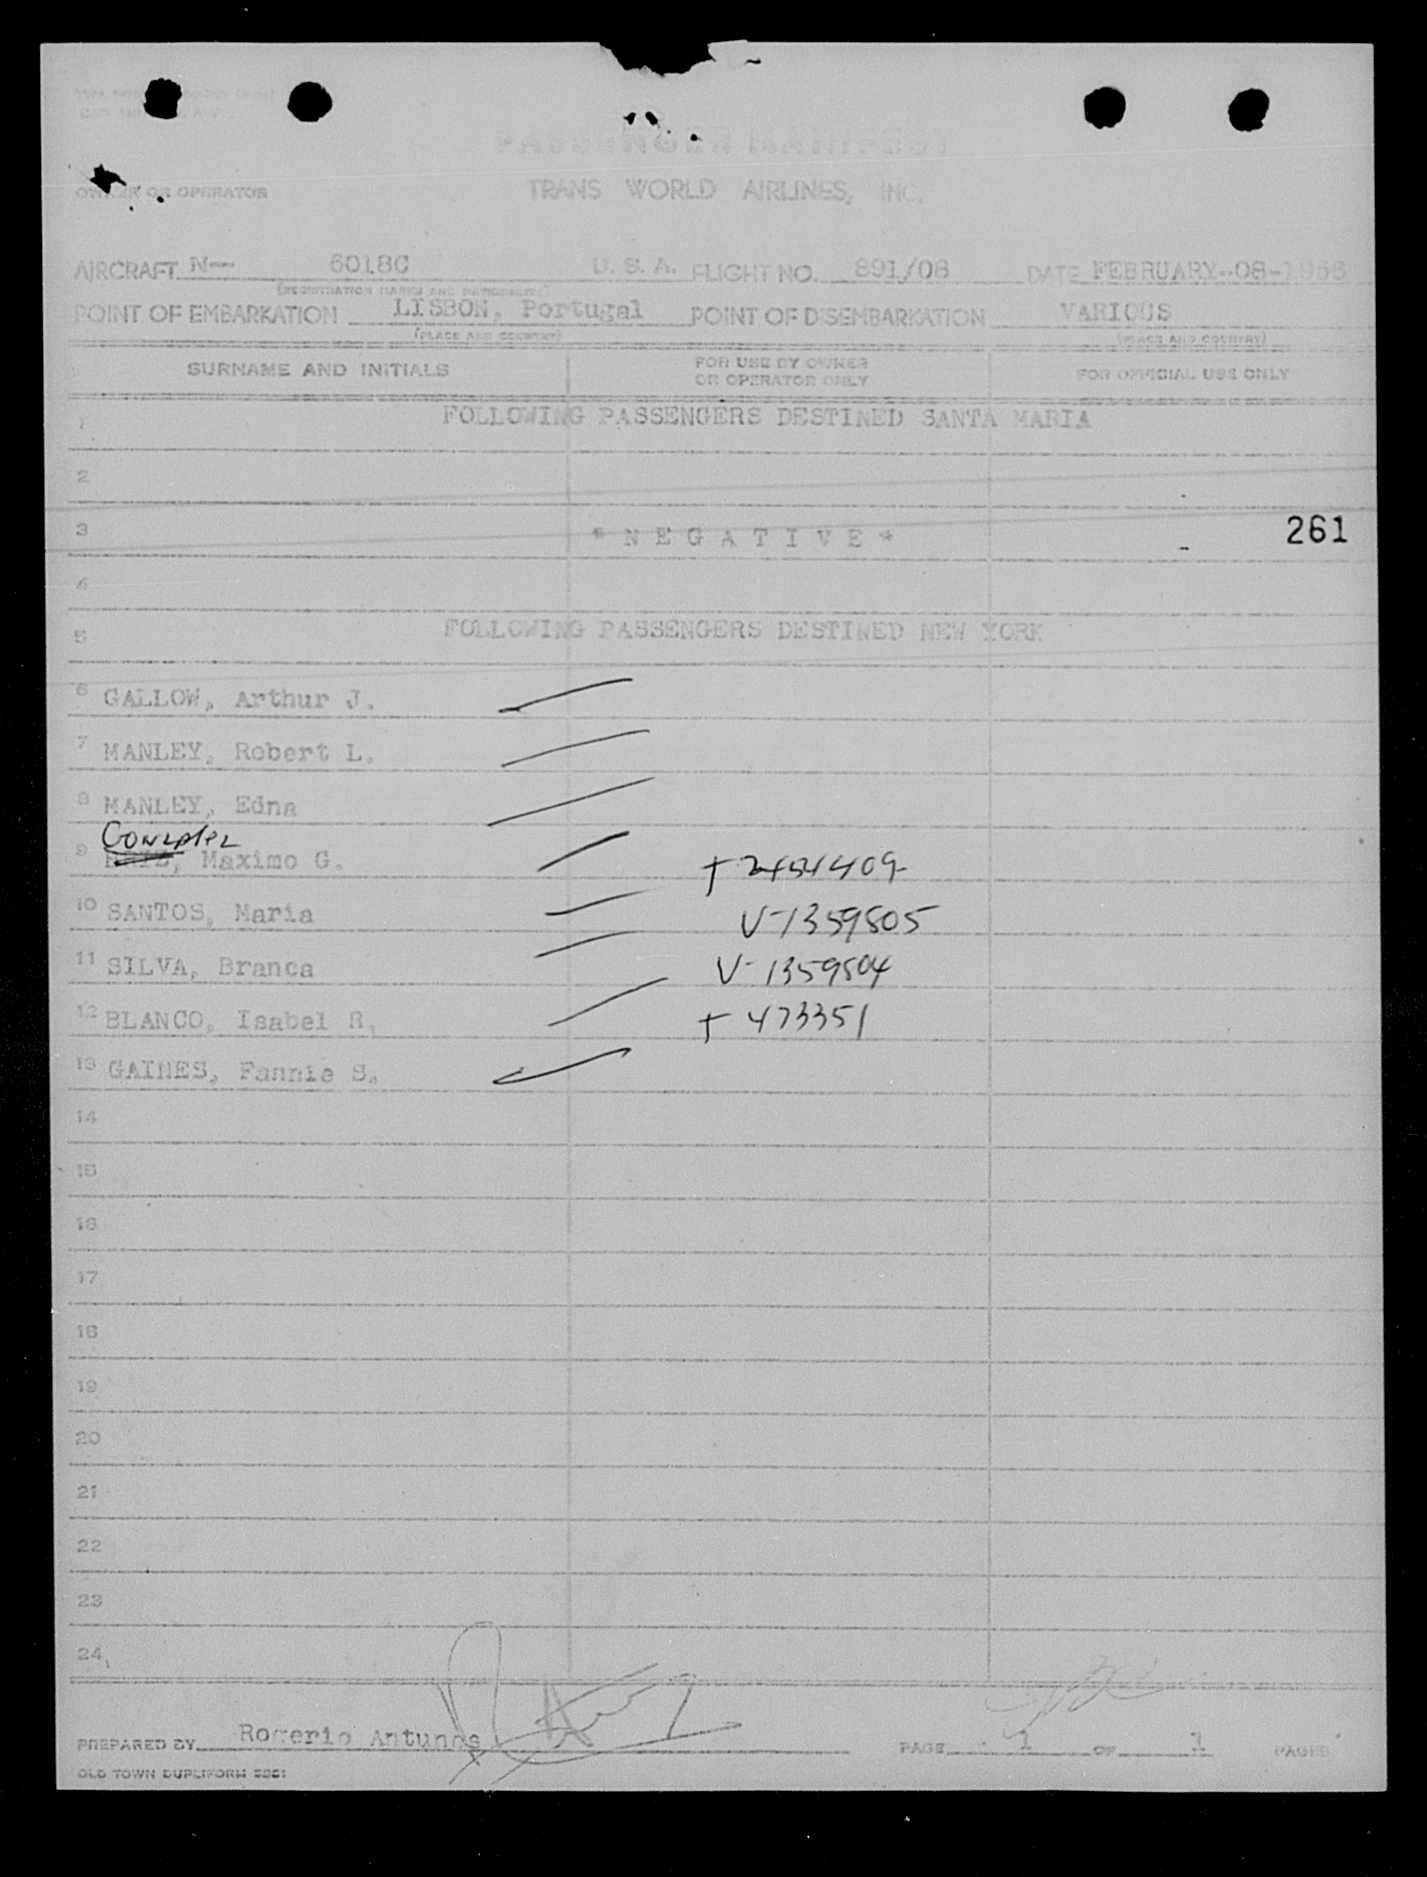 PASSENGER MANIFEST
OWNER OR OPERATOR TRANS WORLD AIRLINES, INC.
AIRCRAFT N-- 6018C U. S. A. FLIGHT NO. 891/08 DATE FEBRUARY--08-
(REGISTRATION MARKS AND NATIONALITY)
POINT OF EMBARKATION LISBON, Portugal POINT OF DISEMBARKATION VARIOUS
(PLACE AND COUNTRY) (PLACE AND COUNTRY)
SURNAME AND INITIALS FOR USE BY OWNER OR OPERATOR ONLY FOR OFFICIAL USE ONLY
1 FOLLOWING PASSENGERS DESTINED SANTA MARIA
2
3 * N E G A T I V E * 261
4
5 FOLLOWING PASSENGERS DESTINED NEW YORK
6 GALLOW, Arthur J.
7 MANLEY, Robert L.
8 MANLEY, Edna
Gonzalez
9 Maximo G.
10 SANTOS, Maria V-1359505
11 SILVA, Branca V-1359504
12 BLANCO, Isabel R. T 473351
13 GAINES, Fannie S.
14
15
16
17
18
19
20
21
22
23
24
PREPARED BY Rogerio Antunes PAGE 1 OF 1 PAGES
OLD TOWN DUPLIFORM